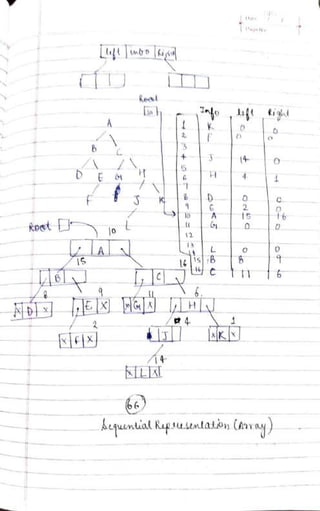 left info Right
Root
10
Info left Right
1 K 0 0
2 F 0 0
3
4 J 14 0
5
6 H 4 1
7
8 D 0 0
9 E 2 0
10 A 15 16
11 G 0 0
12
13
14 L 0 0
15 B 8 9
16 C 11 6
A
B C
D E G H
F J K
L
Root
10
A
15 16
B C
8 9 11 6
X D X E X X G X H
2 4 1
X F X J X K X
14
X L X
66
Sequential Representation (Array)